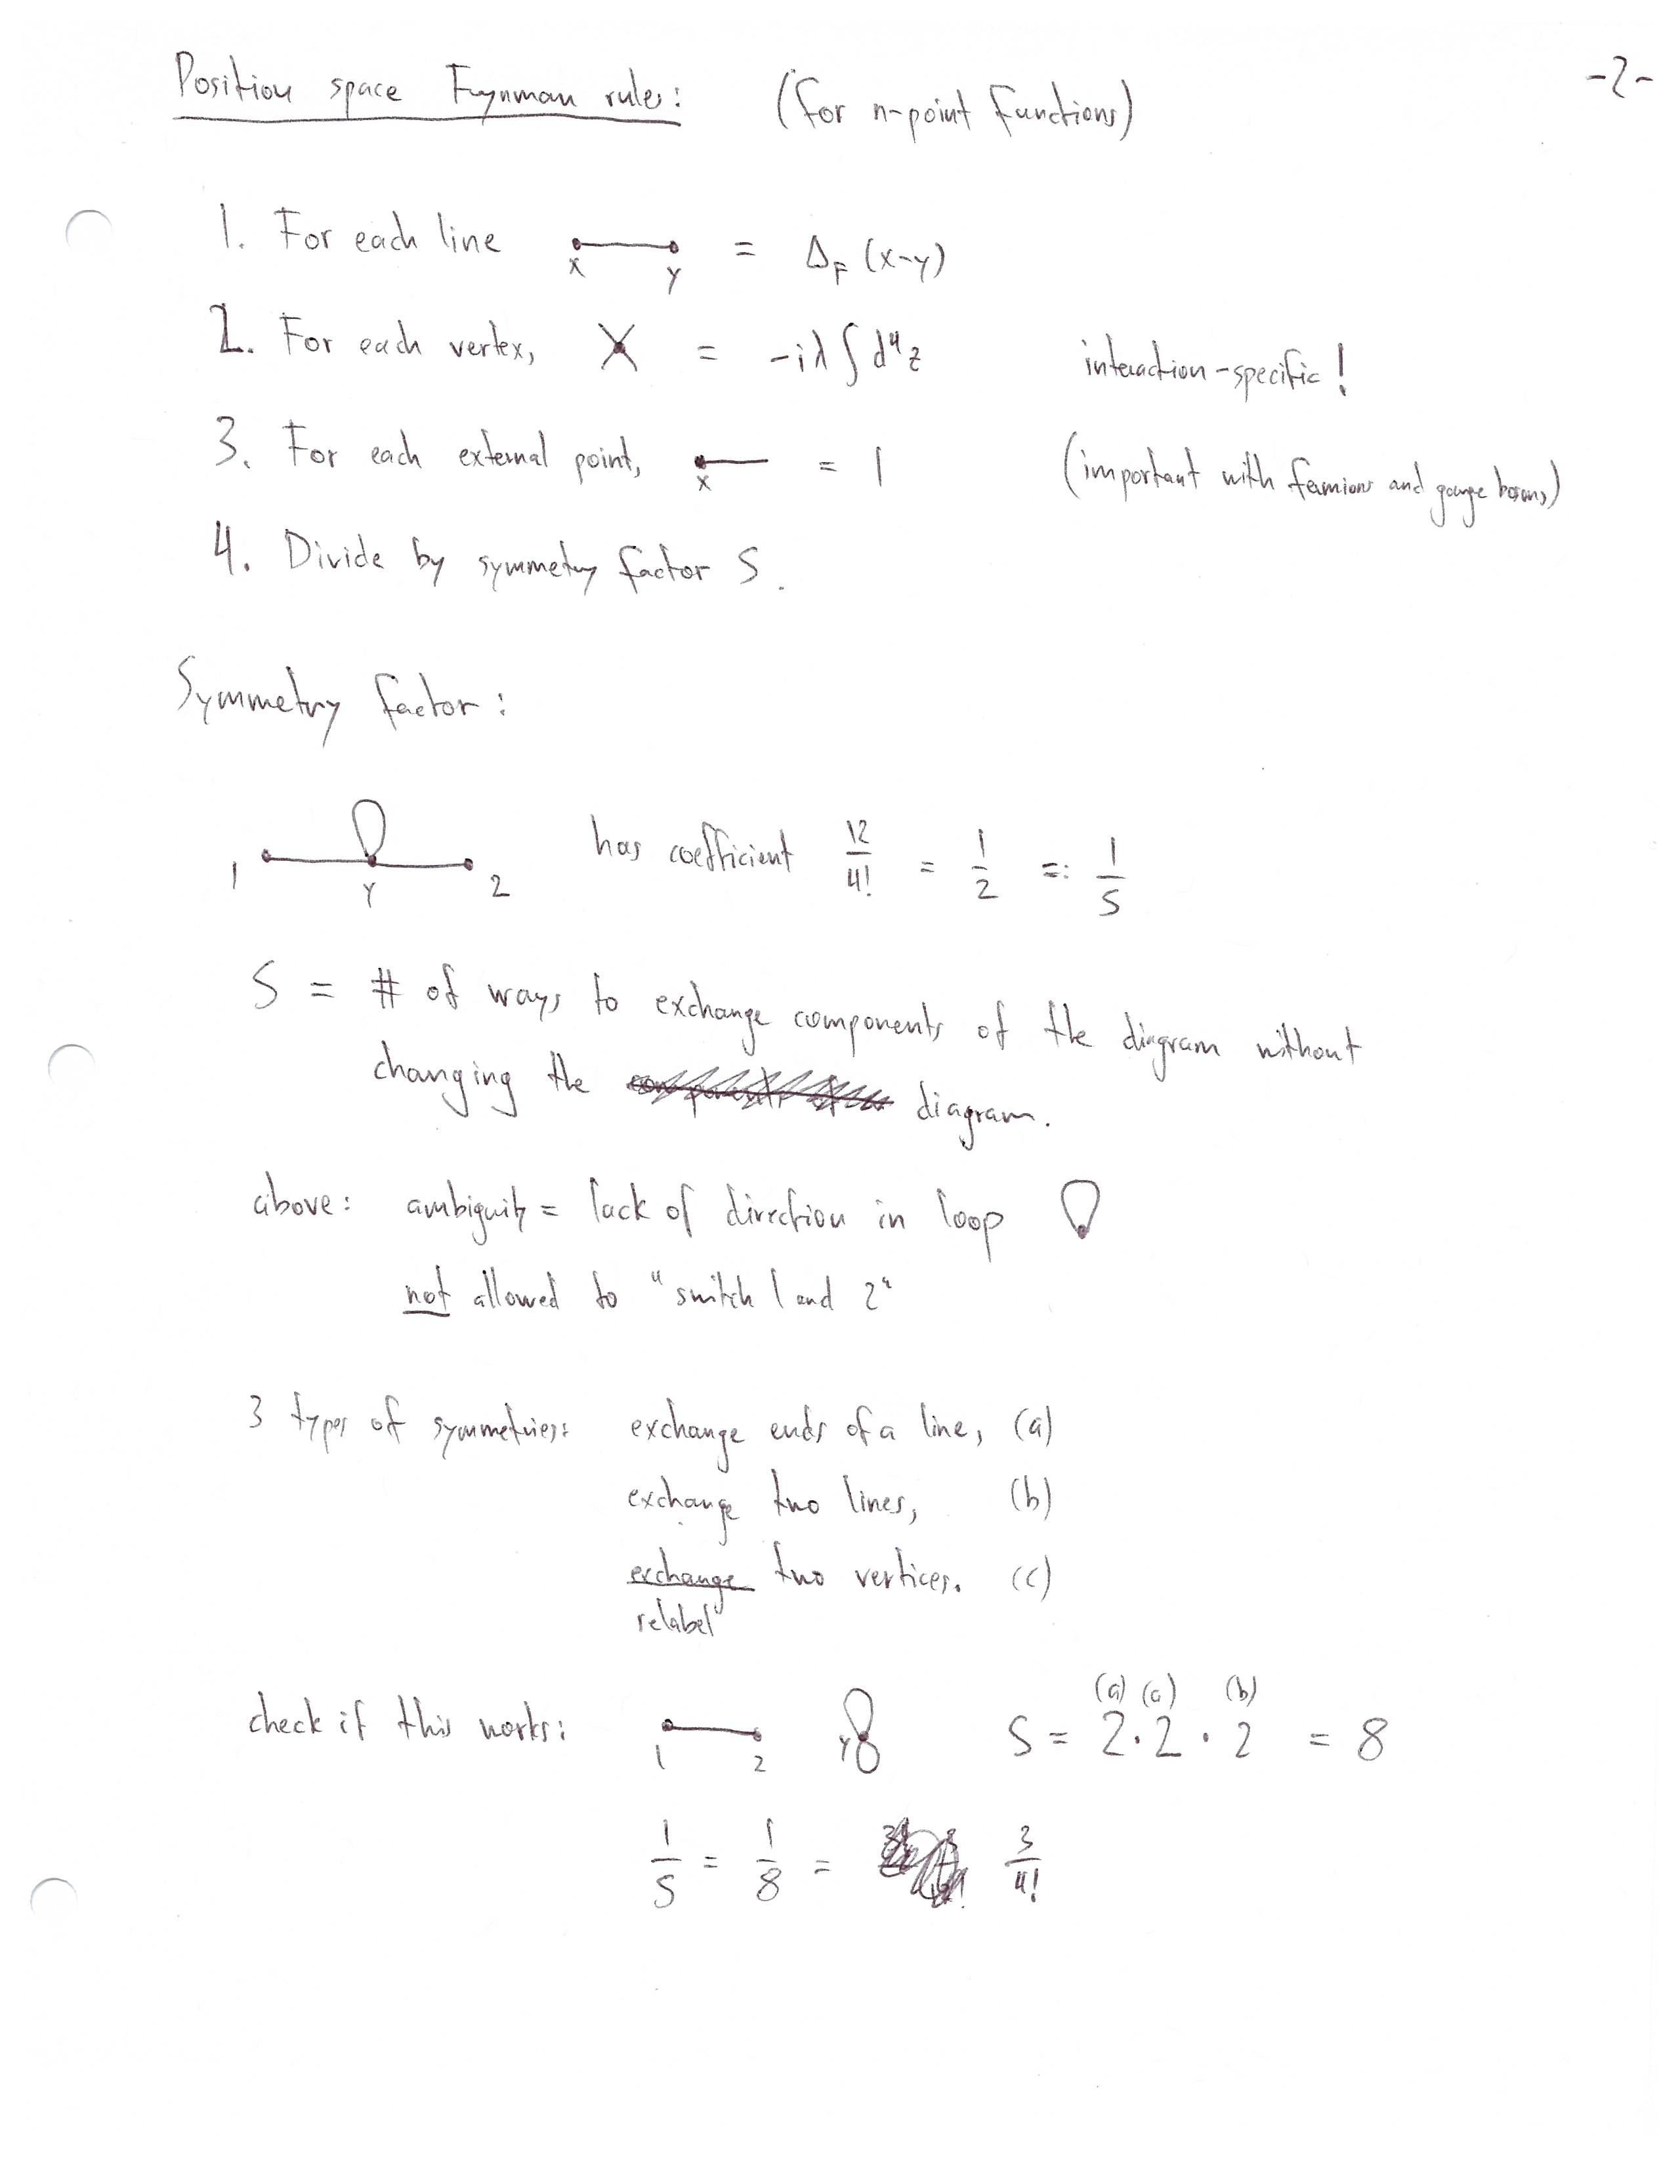 -2-
Position space Feynman rules: (for n-point functions)
1. For each line x y = Δ_F (x-y)
2. For each vertex, = -iλ ∫ d⁴z interaction-specific!
3. For each external point, x = 1 (important with fermions and gauge bosons)
4. Divide by symmetry factor S.
Symmetry factor:
1 y 2 has coefficient 12/4! = 1/2 =: 1/S
S = # of ways to exchange components of the diagram without
changing the diagram.
above: ambiguity = lack of direction in loop
not allowed to "switch 1 and 2"
3 types of symmetries: exchange ends of a line, (a)
exchange two lines, (b)
exchange two vertices. (c)
relabel
(a) (a) (b)
check if this works: 1 2 y S = 2·2·2 = 8
1/S = 1/8 = 3/4!